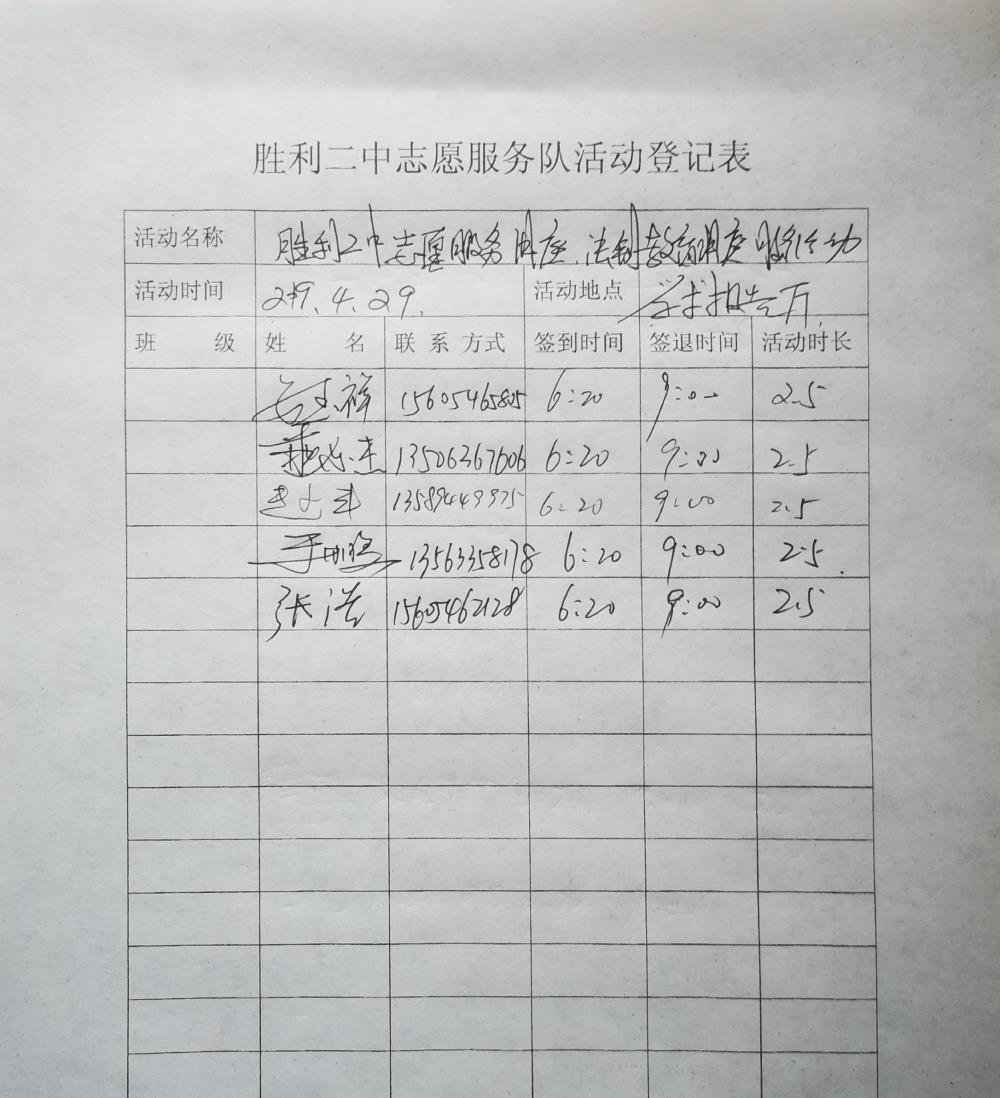 胜利二中志愿服务队活动登记表
活动名称 胜利二中志愿服务讲座、法制教育讲座 服务活动
活动时间 2019.4.29. 活动地点 学术报告厅
班 级 姓 名 联 系 方式 签到时间 签退时间 活动时长
祥 15605465805 6:20 9:00 2.5
13506367606 6:20 9:00 2.5
6:20 9:00 2.5
13563358178 6:20 9:00 2.5
张浩 15605462128 6:20 9:00 2.5